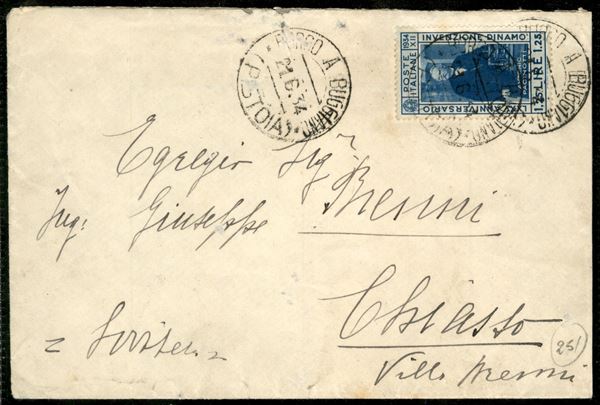 BORGO A BUGGIANO
21.6.34
(PISTOIA)
POSTE ITALIANE
1934 XII
INVENZIONE DINAMO
PACINOTTI
ANNIVERSARIO
LIRE 1.25
BORGO A BUGGIANO
Egregio Sig.
Ing: Giuseppe Bremni
Chiasso
= Svizzera =
Villa Bremni
251